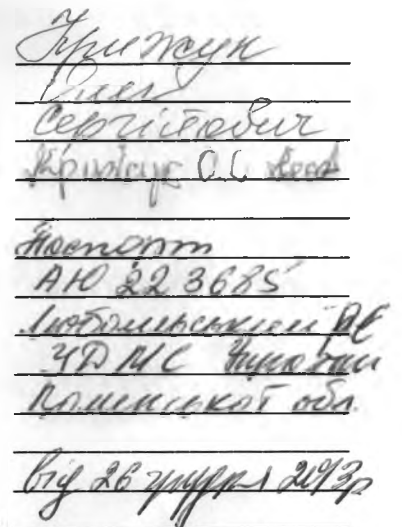 Крижук
Олег
Сергійович
Крижук О.С.
Паспорт
АЮ 223685
Любомльський РС
УДМС України
Волинської обл.
від 26 грудня 2013р